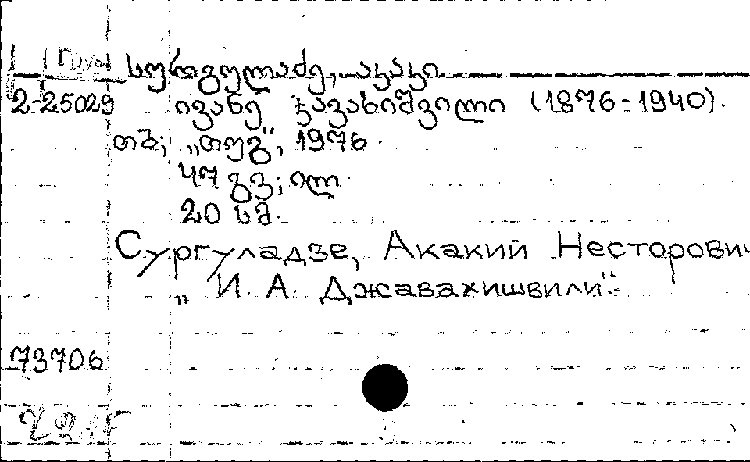 Груз
სურგულაძე, აკაკი
2-25029 ივანე ჯავახიშვილი (1876-1940).
თბ; „თუგ“, 1976
47 გვ; ილ.
20 სმ.
Сургуладзе, Акакий Несторович
„И. А. Джавахишвили“
73706